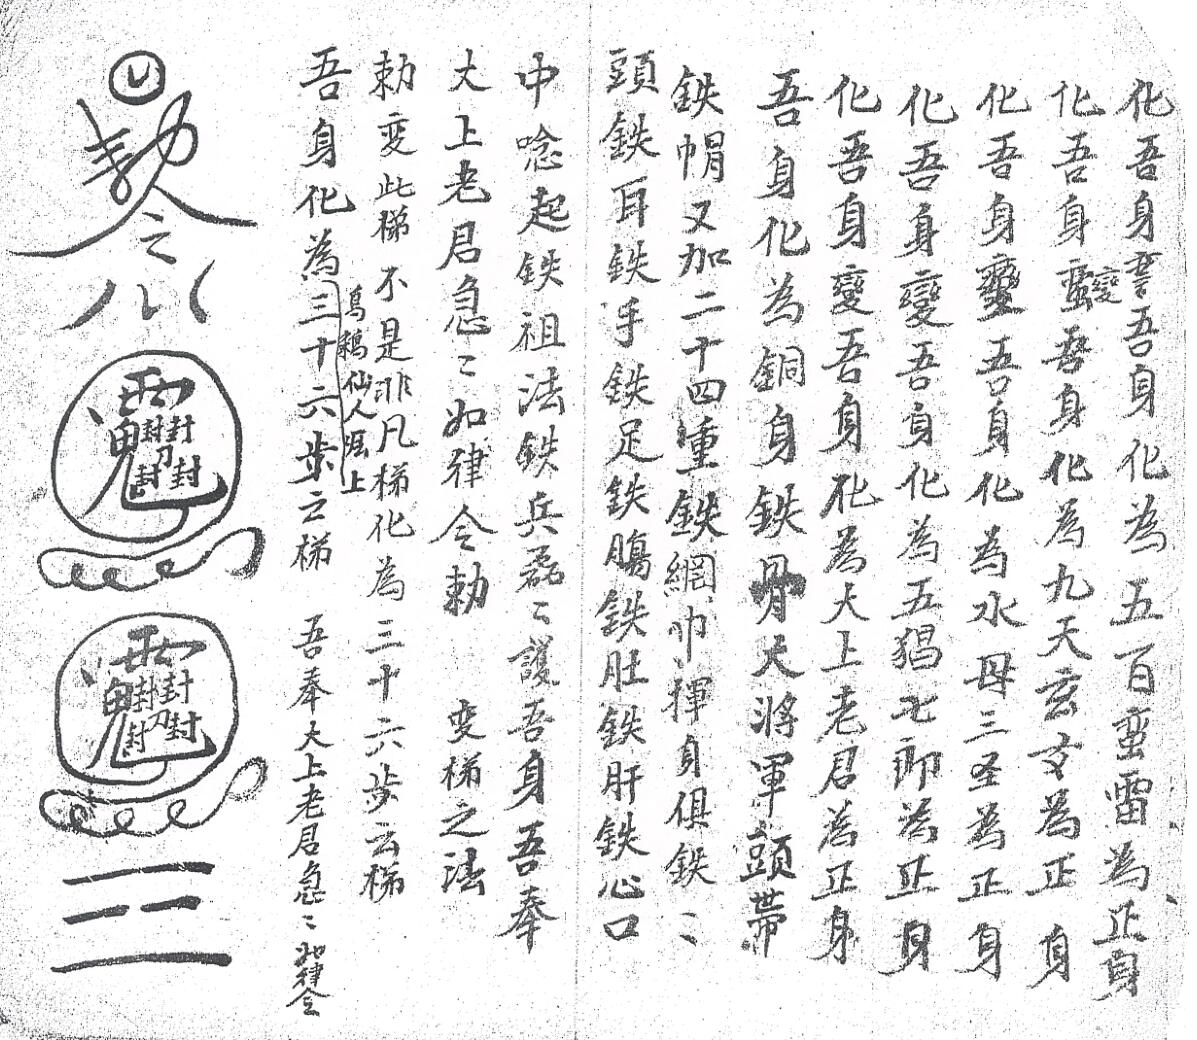 化吾身吾身化為五百蛮雷為正身
化吾身變吾身化為九天玄女為正身
化吾身變吾身化為水母三圣為正身
化吾身變吾身化為五猖七郎為正身
化吾身變吾身化為大上老君為正身
吾身化為銅身鉄骨大將軍頭帶
鉄帽又加二十四重鉄網巾褌身俱鉄〻
頭鉄耳鉄手鉄足鉄腸鉄肚鉄肝鉄心口
中唸起鉄祖法鉄兵磊〻護吾身吾奉
大上老君急〻如律令勅　变梯之法
勅变此梯不是非凡梯化為三十六步云梯
仙人上
吾身化為三十六步云梯　吾奉大上老君急〻如律令
勅令